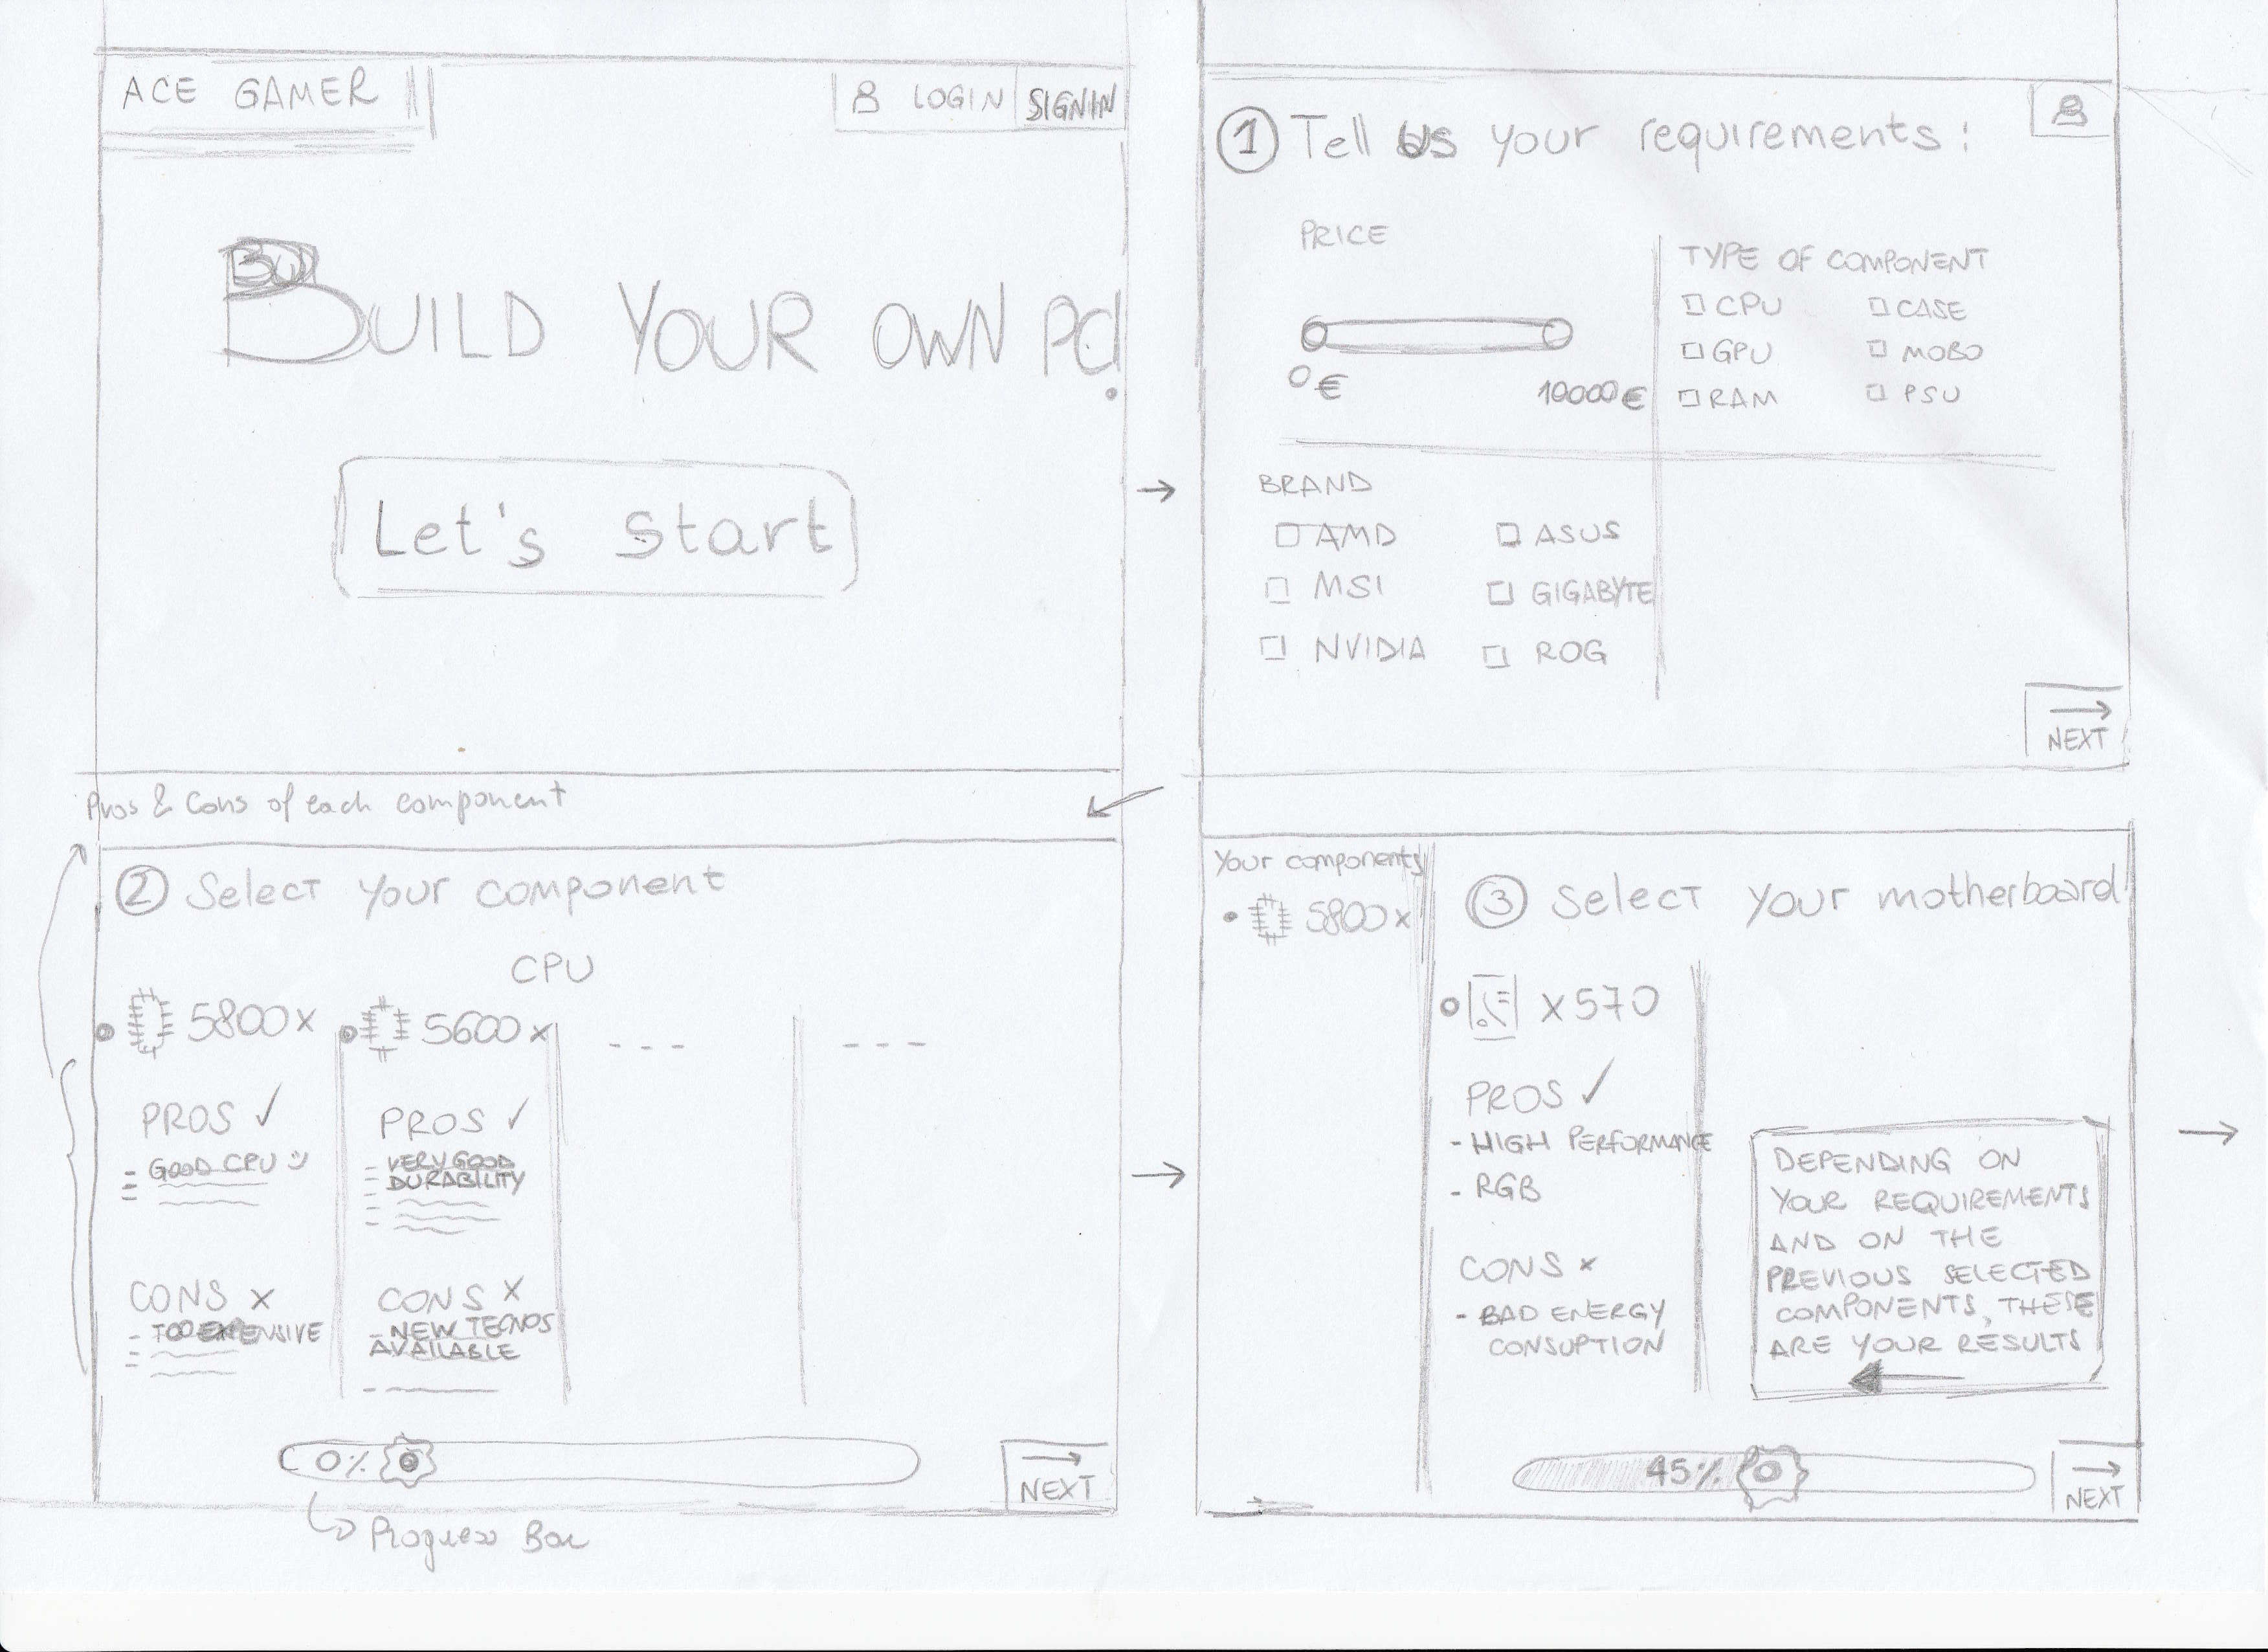 ACE GAMER
LOGIN SIGNIN
BUILD YOUR OWN PC!
Let's start
1 Tell us your requirements:
PRICE
0€ 10000€
TYPE OF COMPONENT
CPU CASE
GPU MOBO
RAM PSU
BRAND
AMD ASUS
MSI GIGABYTE
NVIDIA ROG
NEXT
Pros & Cons of each component
2 Select your component
CPU
5800x
PROS ✓
- GOOD CPU
CONS x
- TOO EXPENSIVE
5600x
PROS ✓
- VERY GOOD
DURABILITY
CONS x
- NEW TECNOS
AVAILABLE
0%
NEXT
Progress Bar
Your components
5800x
3 Select your motherboard
x570
PROS ✓
- HIGH PERFORMANCE
- RGB
CONS x
- BAD ENERGY
CONSUPTION
DEPENDING ON
YOUR REQUIREMENTS
AND ON THE
PREVIOUS SELECTED
COMPONENTS, THESE
ARE YOUR RESULTS
45%
NEXT